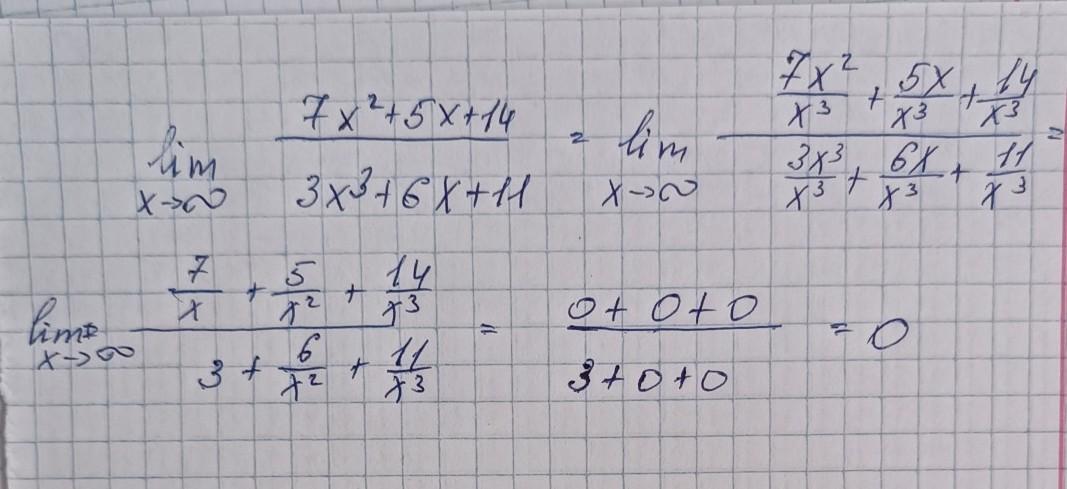 lim x→∞ (7x²+5x+14)/(3x³+6x+11) = lim x→∞ (7x²/x³ + 5x/x³ + 14/x³)/(3x³/x³ + 6x/x³ + 11/x³) =
lim x→∞ (7/x + 5/x² + 14/x³)/(3 + 6/x² + 11/x³) = (0+0+0)/(3+0+0) = 0